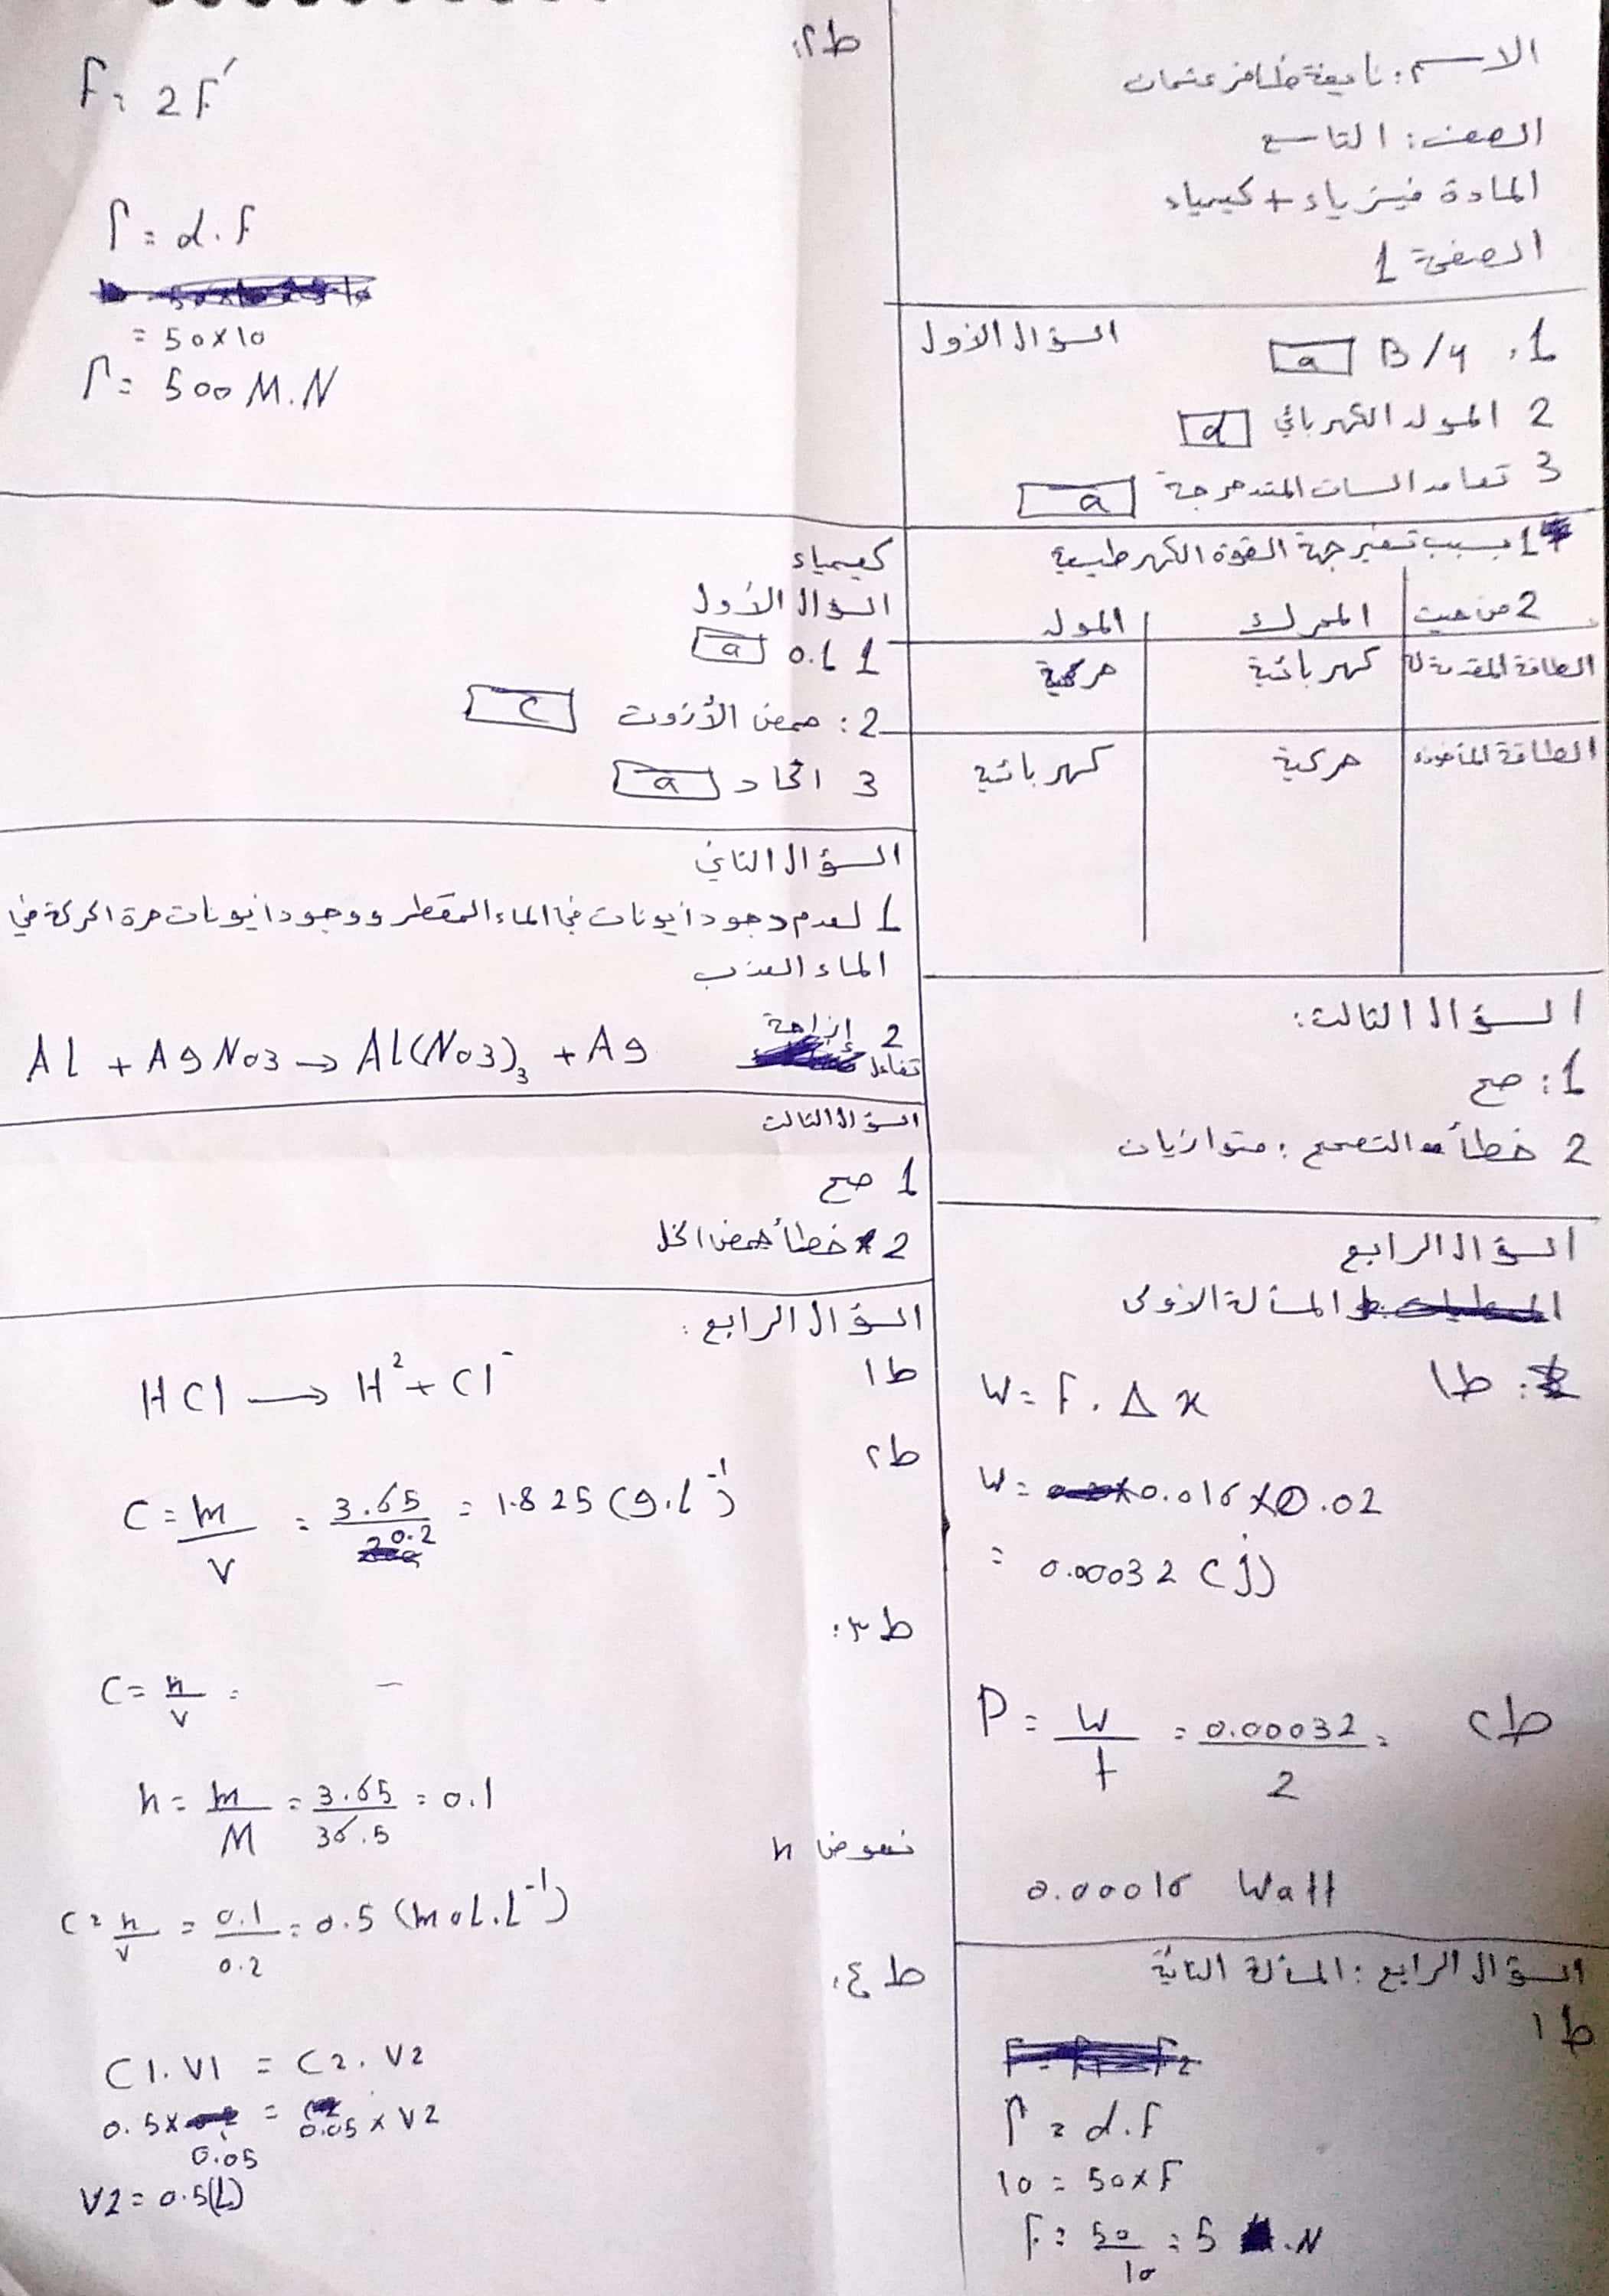 الاسم: نايفة ظافر عثمان
الصف: التاسع
المادة فيزياء + كيمياء
الصفحة 1
السؤال الأول
1. B/4 a
2 المولد الكهربائي d
3 تعامد السات المتدحرجة a
1 بسبب تغير جهة القوة الكهرطيسية
2 من حيث | المحرك | المولد
الطاقة المقدمة له | كهربائية | حركية
الطاقة المأخوذة | حركية | كهربائية
السؤال الثالث:
1: صح
2 خطأ التصحيح: متوازيان
السؤال الرابع
المسألة الأولى
ط1
W = F . Δx
W = 0.016 × 0.02
= 0.00032 (J)
ط2
P = W/t = 0.00032/2 =
0.00016 Watt
السؤال الرابع: المسألة الثانية
ط1
Γ = d.F
10 = 50 × F
F = 50/10 = 5 .N
ط2:
F = 2F'
Γ = d.F
= 50×10
Γ = 500 M.N
كيمياء
السؤال الأول
1 0.1 a
2: حمض الأزوت c
3 اتحاد a
السؤال الثاني
1 لعدم وجود أيونات في الماء المقطر ووجود أيونات حرة الحركة في
الماء العذب
2 تفاعل إزاحة
Al + AgNo3 → Al(No3)3 + Ag
السؤال الثالث
1 صح
2 خطأ حمض الخل
السؤال الرابع:
ط1
HCl → H² + Cl⁻
ط2
C = m/V = 3.65/0.2 = 1.825 (g.l⁻¹)
ط3:
C = n/v =
n = m/M = 3.65/36.5 = 0.1
نعوض n
C = n/v = 0.1/0.2 = 0.5 (moL.L⁻¹)
ط4:
C1.V1 = C2.V2
0.5 × 0.05 = 0.05 × V2
V2 = 0.5(L)